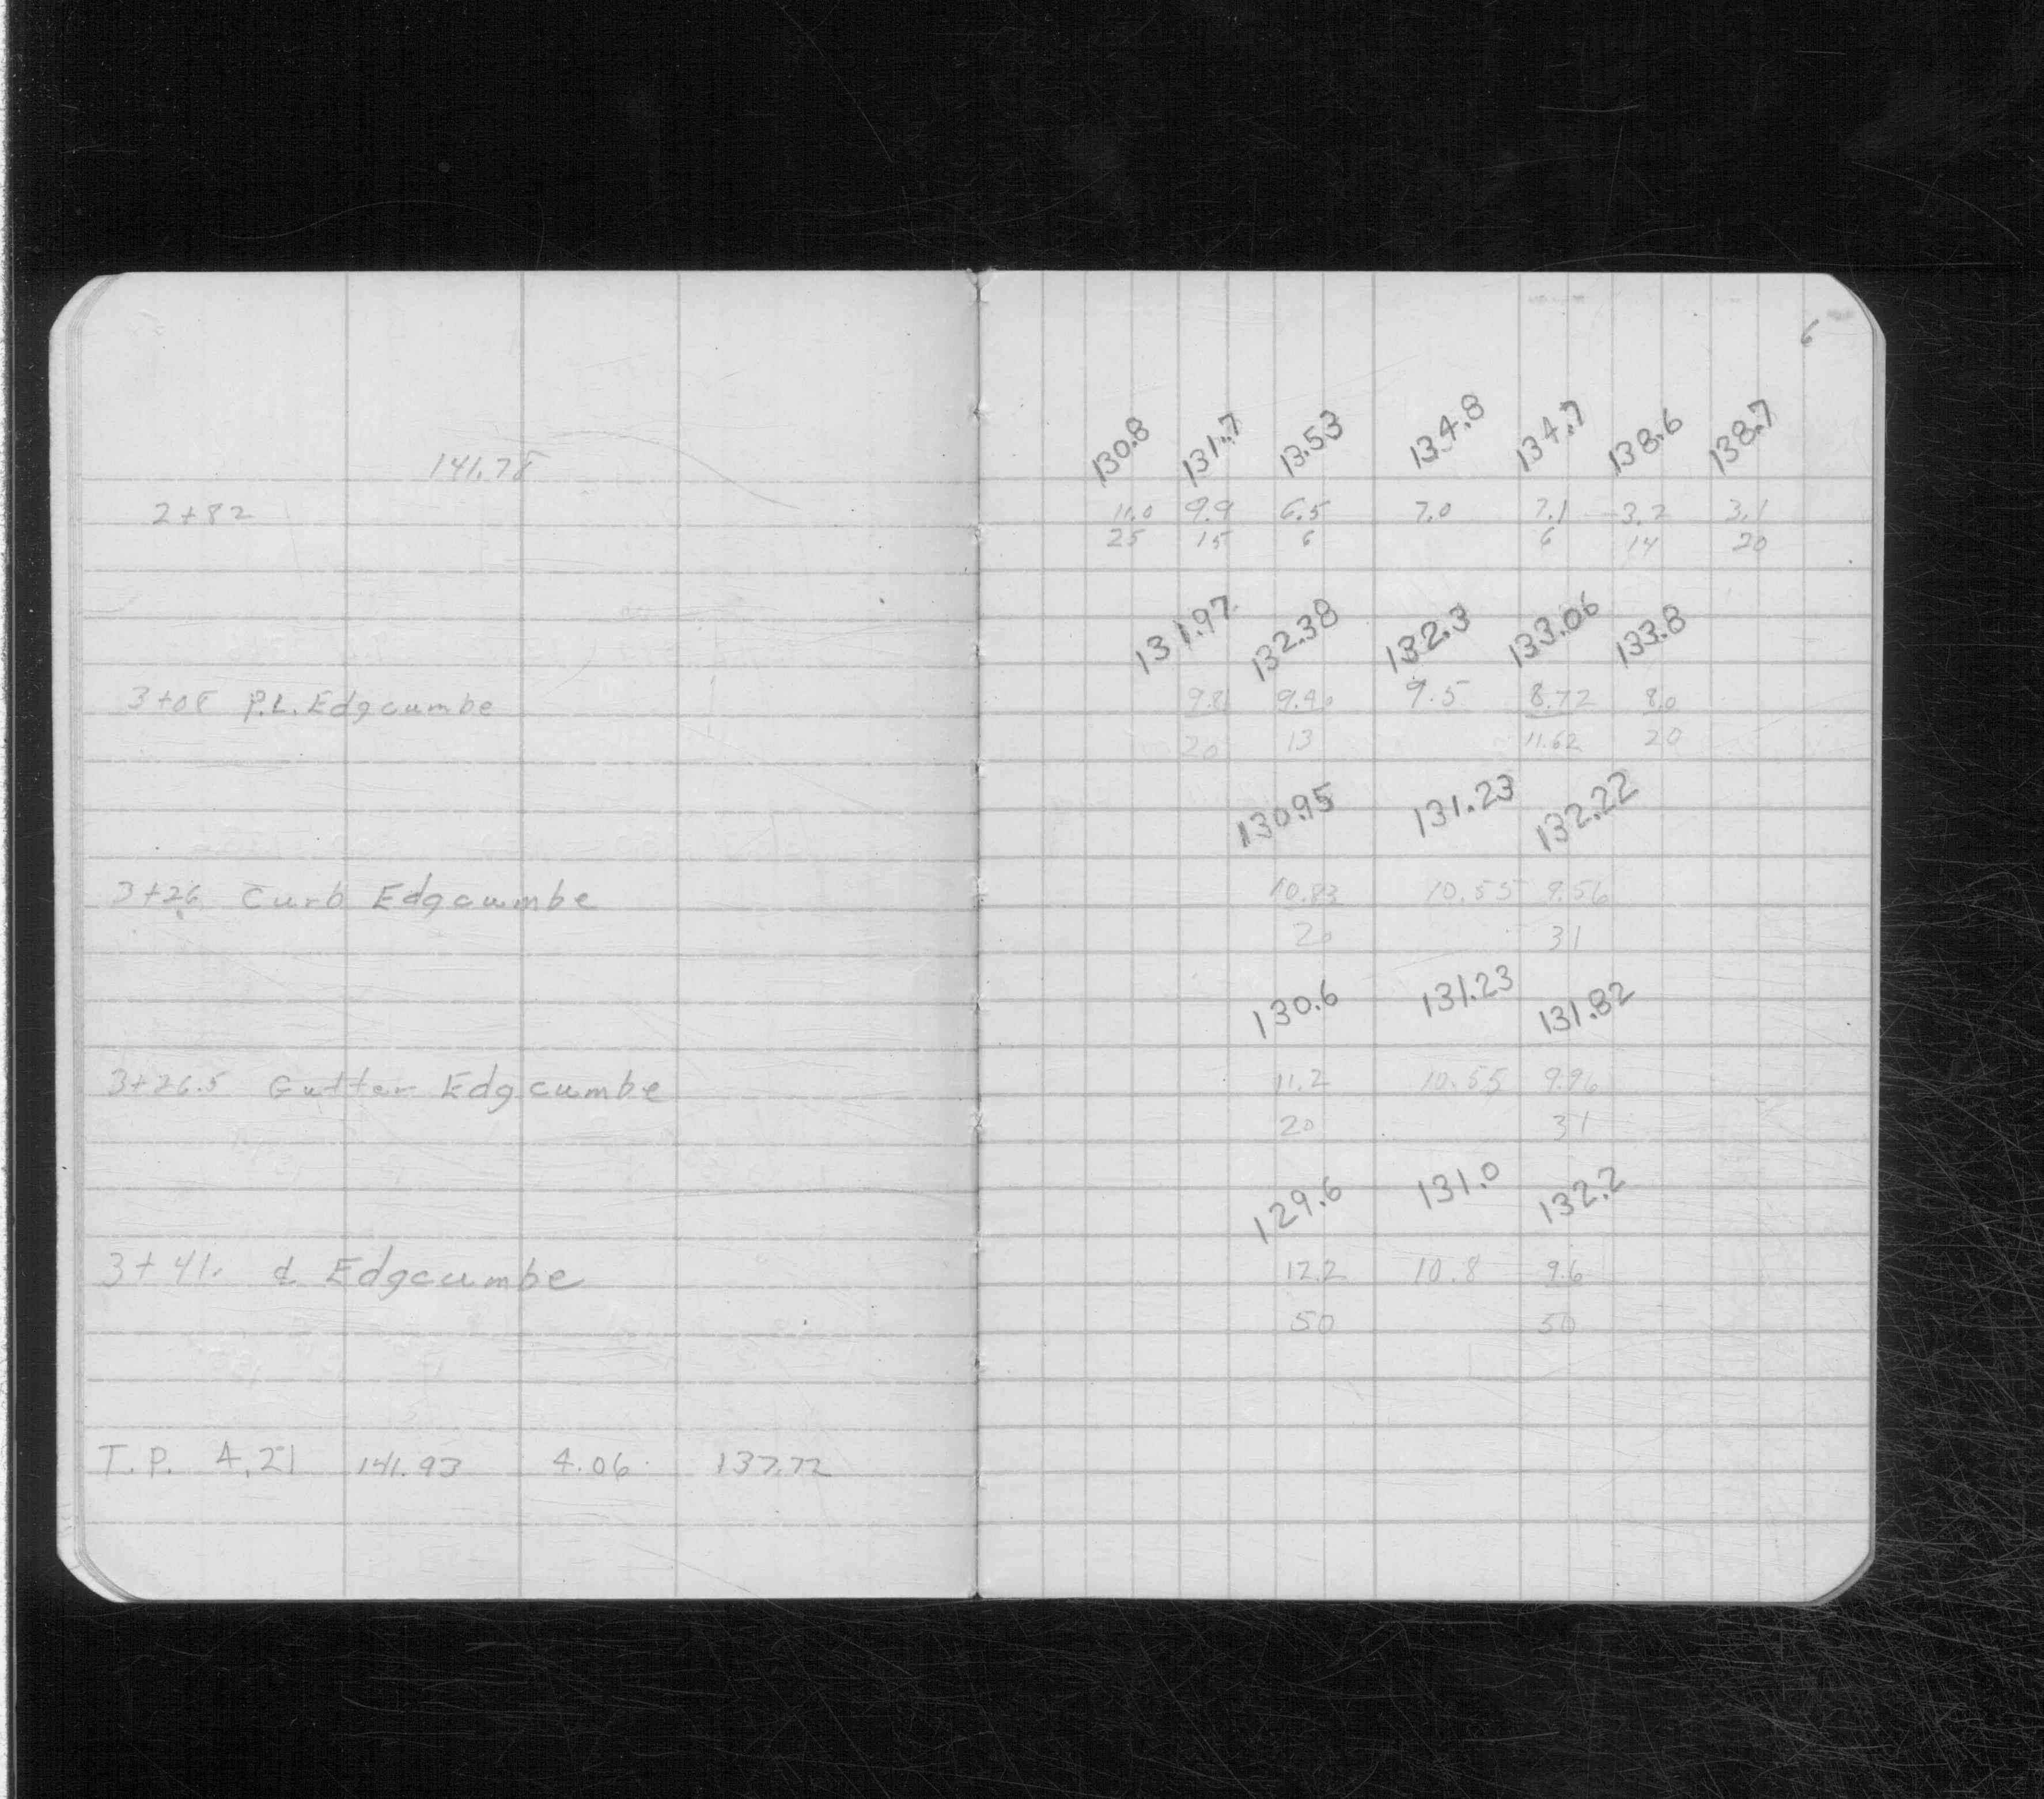 6
130.8 131.7 13.53 134.8 134.7 138.6 138.7
141.78
2+82 11.0 9.9 6.5 7.0 7.1 3.2 3.1
25 15 6 6 14 20
131.97 132.38 132.3 133.06 133.8
3+08 P.L. Edgcumbe 9.8 9.40 9.5 8.72 8.0
20 13 11.62 20
130.95 131.23 132.22
3+26 Curb Edgcumbe 10.83 10.55 9.56
20 31
130.6 131.23 131.82
3+26.5 Gutter Edgcumbe 11.2 10.55 9.96
20 31
129.6 131.0 132.2
3+41. ¢ Edgcumbe 12.2 10.8 9.6
50 50
T.P. 4.21 141.93 4.06 137.72